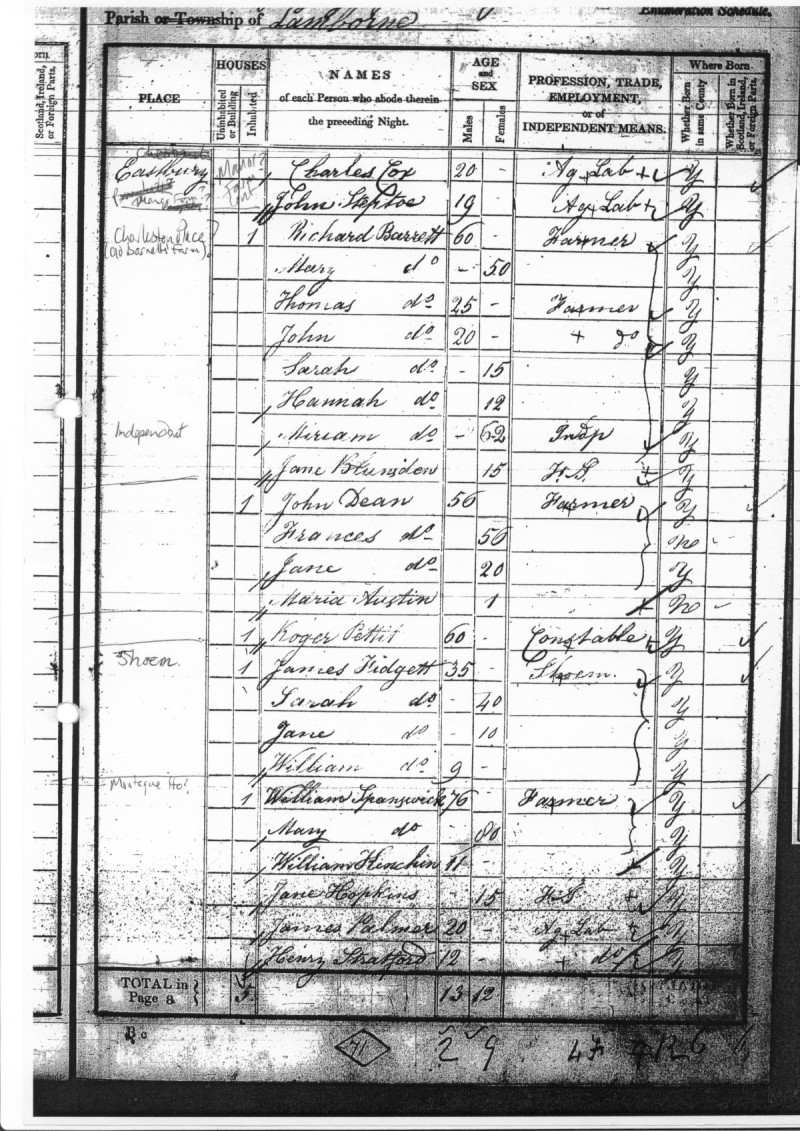 Parish or Township of Lamborne
Enumeration Schedule.
PLACE
HOUSES
Uninhabited or Building
Inhabited
NAMES
of each Person who abode therein
the preceding Night.
AGE
and
SEX
Males
Females
PROFESSION, TRADE,
EMPLOYMENT,
or of
INDEPENDENT MEANS.
Where Born
Whether Born in same County
Whether Born in Scotland, Ireland, or Foreign Parts.
Scotland, Ireland, or Foreign Parts.
Eastbury Charles Cox 20 - Ag Lab Y
John Steptoe 19 - Ag Lab Y
Charleston Place 1 Richard Barrett 60 - Farmer Y
(Old Barnetts Farm)
Mary do - 50 Y
Thomas do 25 - Farmer Y
John do 20 - do Y
Sarah do - 15 Y
Hannah do 12 Y
Independent Miriam do - 62 Indp Y
Jane Blunsden 15 F.S. Y
1 John Dean 56 Farmer Y
Frances do 56 No -
Jane do 20 Y
Maria Austin 1 No -
1 Roger Pettit 60 - Constable Y
Shoem. 1 James Fidgett 35 - Shoem. Y
Sarah do - 40 Y
Jane do - 10 Y
William do 9 - Y
Montague Ho? 1 William Spanswick 76 Farmer Y
Mary do - 80 Y
William Kinchin 11 - Y
Jane Hopkins - 15 F.S. Y
James Palmer 20 - Ag Lab Y
Henry Shatford 12 - do Y
TOTAL in
Page 8 5 13 12
B c
71
2 9